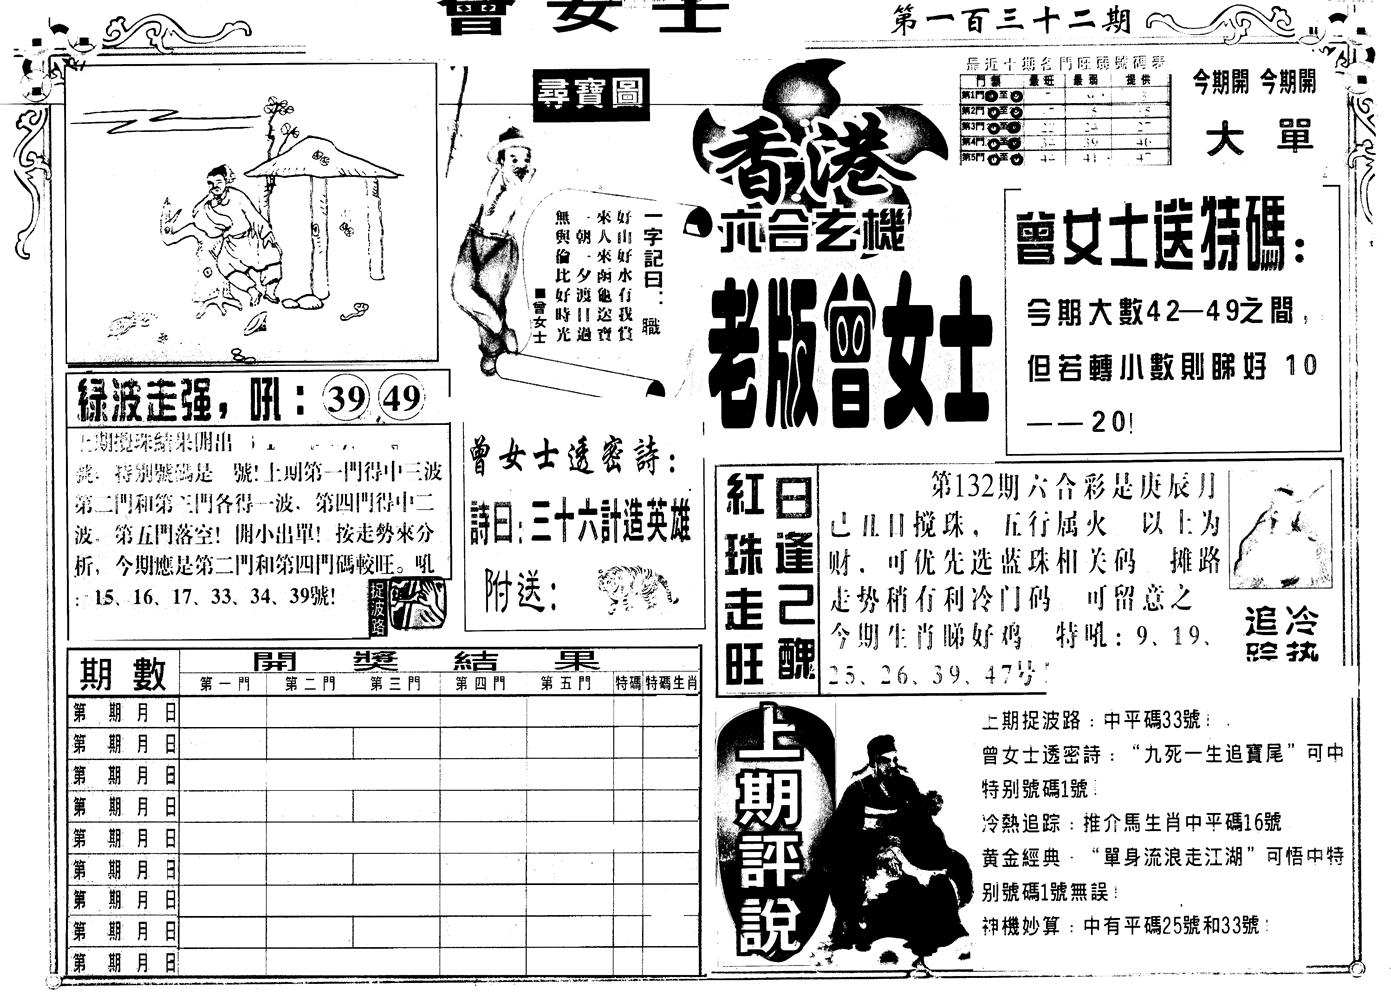 曾女士
第一百三十二期
尋寶圖
一字記曰：職
好山好水有我賞
來人來函龜送寶
一朝一夕渡日過
無與倫比好時光
■曾女士
香港
六合玄機
老版曾女士
最近十期各門旺弱號碼表
門類 最旺 最弱 提供
第1門 至
第2門 至
第3門 至
第4門 至
第5門 至
今期開 今期開
大 單
曾女士送特碼：
今期大數42—49之間，
但若轉小數則睇好 10
——20!
綠波走强，吼：39 49
上期攪珠結果開出
號﹐特別號碼是 號!上期第一門得中三波
第二門和第三門各得一波、第四門得中二
波。第五門落空！開小出單！按走勢來分
析，今期應是第二門和第四門碼較旺。吼
：15、16、17、33、34、39號!
捉波路
曾女士透密詩：
詩曰：三十六計造英雄
附送：
紅珠走旺
日逢己醜
第132期六合彩是庚辰月
己丑日搅珠，五行属火 以土为
财，可优先选蓝珠相关码 摊路
走势稍有利冷门码 可留意之
今期生肖睇好鸡 特吼：9、19、
25、26、39、47号
冷热
追踪
期數
開獎結果
第一門 第二門 第三門 第四門 第五門 特碼 特碼生肖
第 期 月 日
第 期 月 日
第 期 月 日
第 期 月 日
第 期 月 日
第 期 月 日
第 期 月 日
第 期 月 日
第 期 月 日
上期評說
上期捉波路：中平碼33號！
曾女士透密詩：“九死一生追寶尾”可中
特别號碼1號！
冷熱追踪：推介馬生肖中平碼16號
黄金經典·“單身流浪走江湖”可悟中特
别號碼1號無誤！
神機妙算：中有平碼25號和33號！